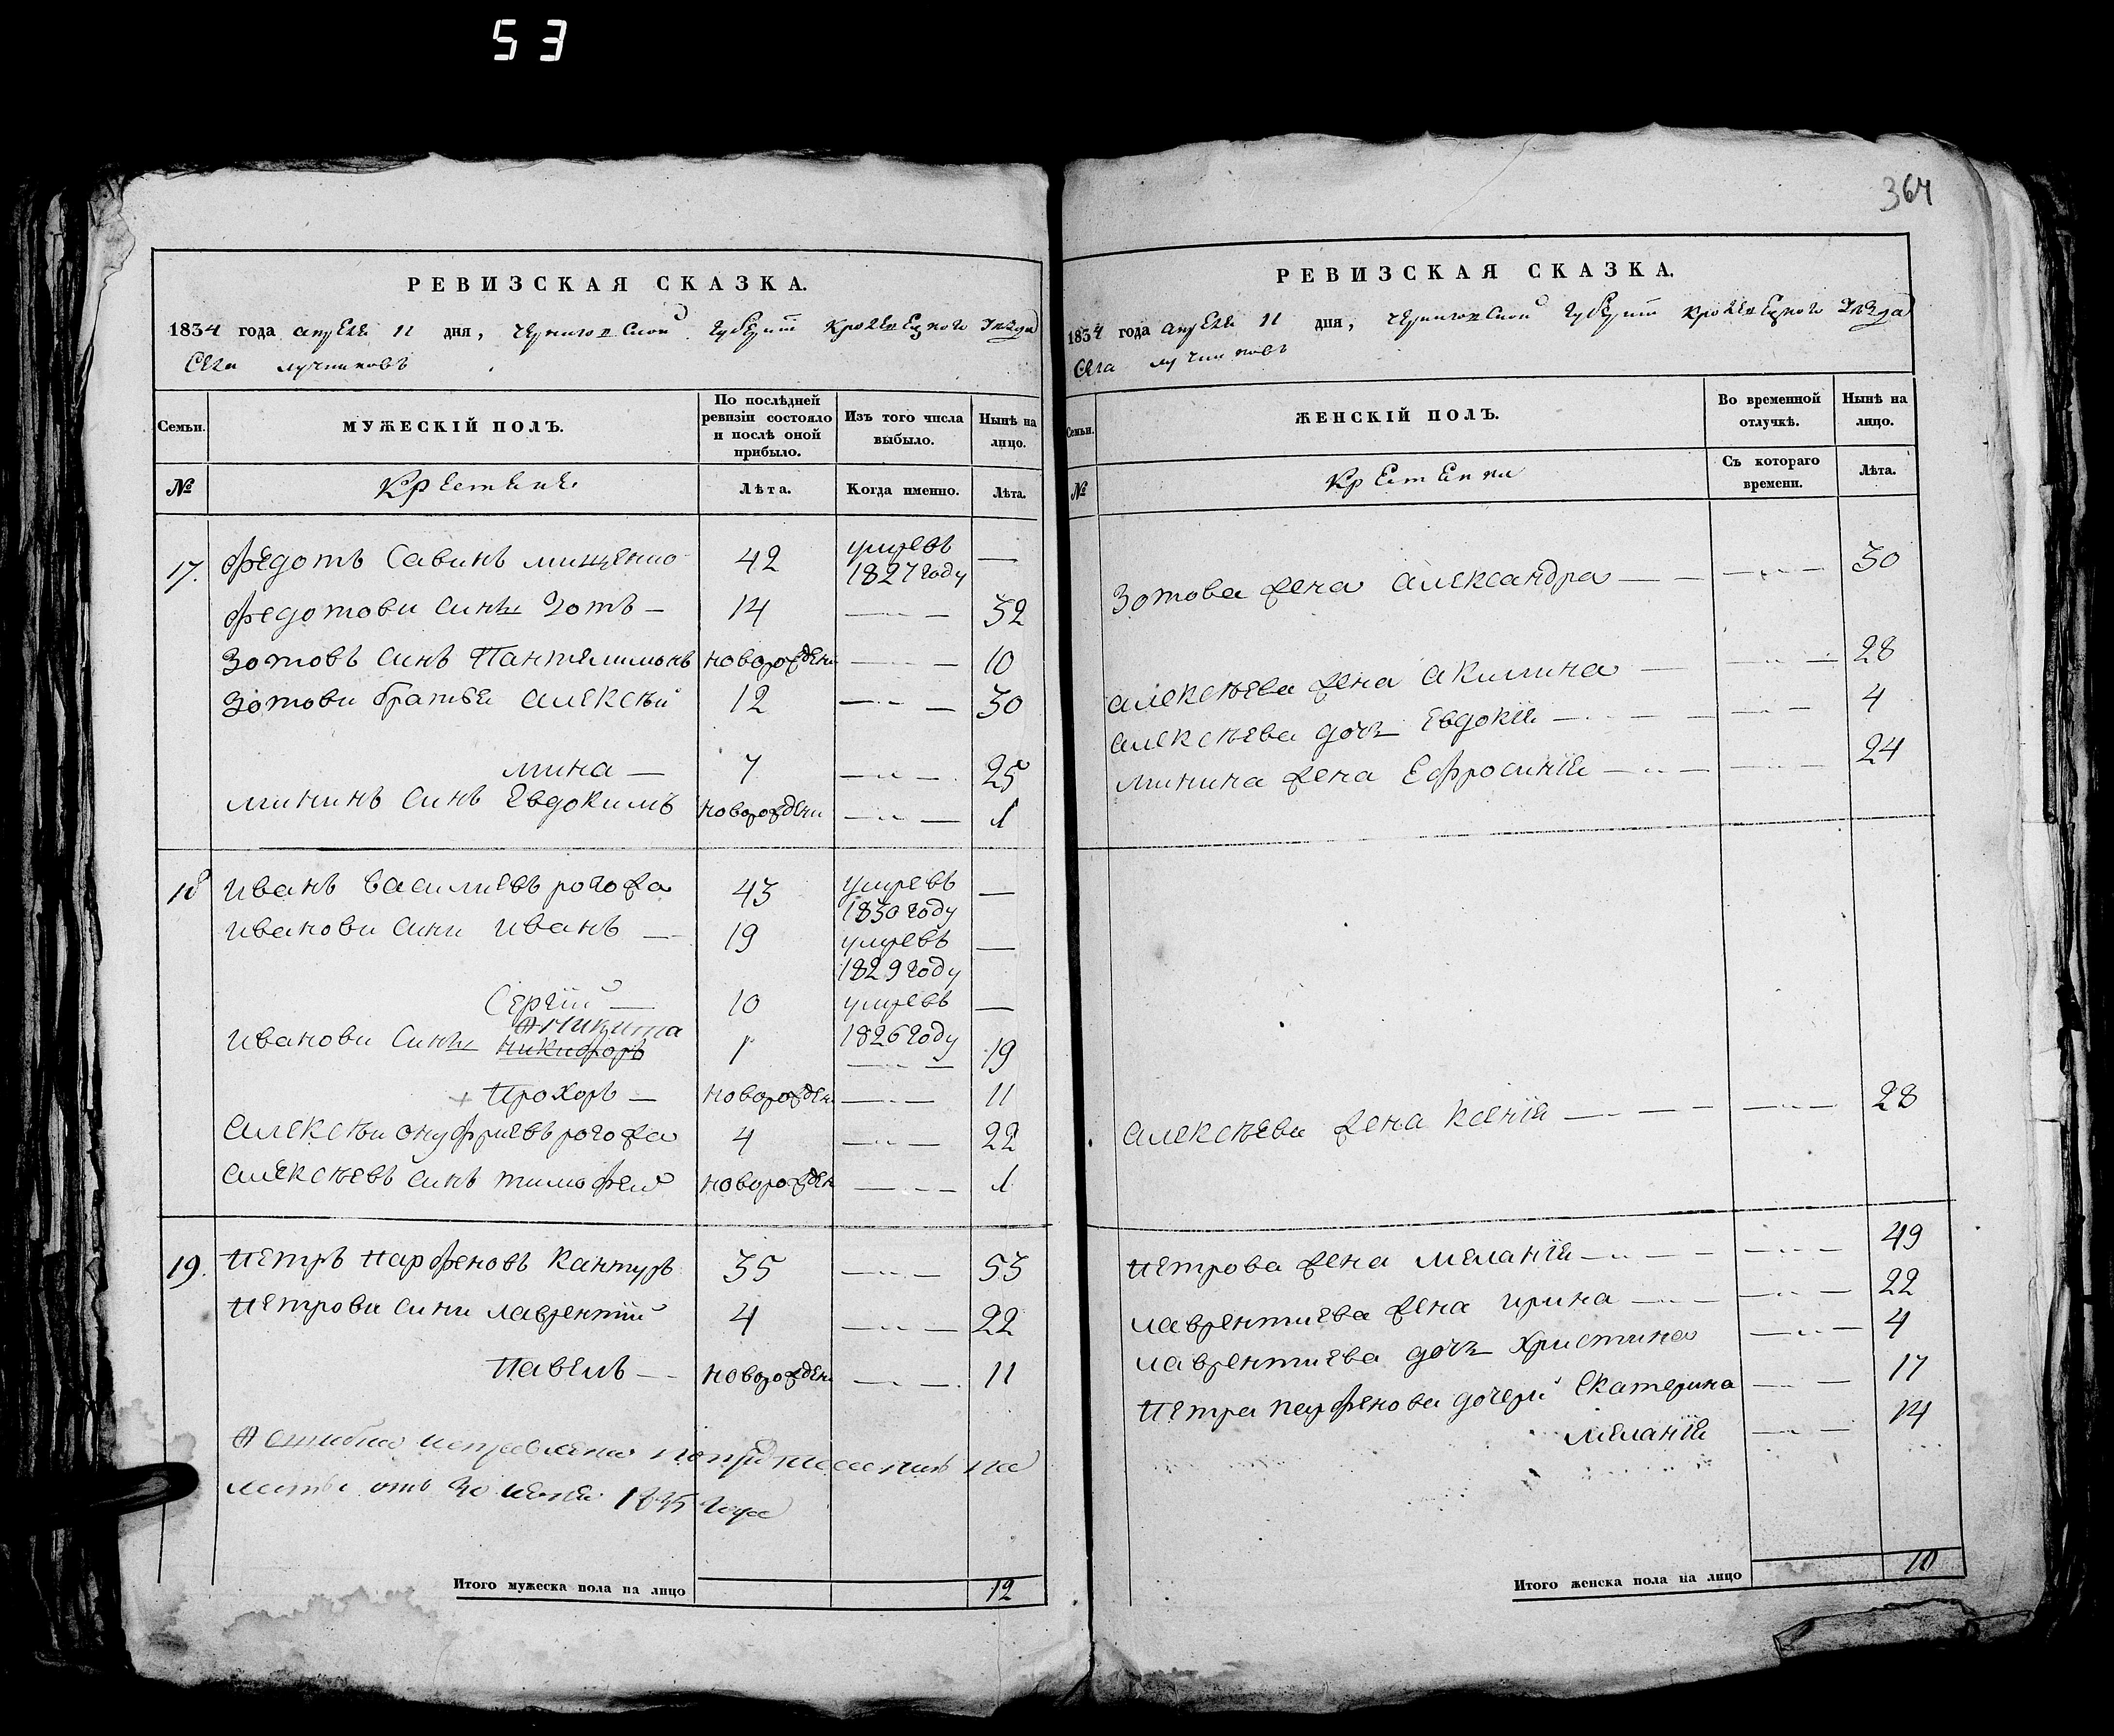 53
364
РЕВИЗСКАЯ СКАЗКА.
1834 года апреля 11 дня, Черниговской Губернии Кролевецкого Уезда
Села Лучниковъ
Семьи. МУЖЕСКІЙ ПОЛЪ. По послѣдней ревизіи состояло и послѣ оной прибыло. Изъ того числа выбыло. Нынѣ на лицо.
№ Крестяне Лѣта. Когда именно. Лѣта.
17. Федотъ Савинъ Мищенко 42 умревъ 1827 году —
Федотови Синъ Зотъ — 14 — 32
Зотовъ Синъ Пантелимонъ новорожден — 10
Зотови братья Алексѣй 12 — 30
Мина — 7 — 25
Мининъ Синъ Евдокимъ новорожден — 1
18 Иванъ Василиевъ Рогожа 43 умревъ 1830 году —
Иванови Сини Иванъ — 19 умревъ 1829 году —
Сергій — 10 умревъ 1826 году —
Никита
Иванови Сини Никифоръ 1 — 19
Прохоръ — новорожден — 11
Алексѣй Онуфриевъ Рогожа 4 — 22
Алексѣевъ Синъ Тимофей новорожден — 1
19. Петръ Парфеновъ Кантуръ 35 — 53
Петрови Сини Лаврентій 4 — 22
Павелъ — новорожден — 11
Ошибка исправлена по предписанию на
места отъ 30 1835 года
Итого мужеска пола на лицо 12
РЕВИЗСКАЯ СКАЗКА.
1834 года апреля 11 дня, Черниговской Губернии Кролевецкого Уезда
Села Лучниковъ
Семьи. ЖЕНСКІЙ ПОЛЪ. Во временной отлучкѣ. Нынѣ на лицо.
№ Крестянки Съ котораго времени. Лѣта.
Зотова жена Александра — 30
Алексѣева жена Акилина — 28
Алексѣева дочь Евдокія — 4
Минина жена Ефросинія — 24
Алексѣева жена Ксенія — 28
Петрова жена Меланія — 49
Лаврентиева жена Ирина — 22
Лаврентиева дочь Христина — 4
Петра Парфенова дочери Екатерина — 17
Меланія — 14
Итого женска пола на лицо 10